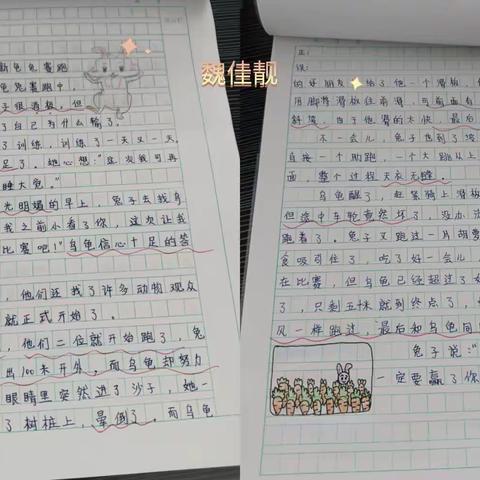 魏佳靓
新龟兔赛跑
龟兔赛跑中，
子很沮丧，但
了自己为什么输了。
了训练，训练了一天又一天。
足了。她心想：“这次我可再
睡大觉。”
光明媚的早上，兔子去找乌
我之前小看了你，这次让我
比赛吧！”乌龟信心十足的答
，他们还找了许多动物观众
就正式开始了。
，他们二位就开始跑了，兔
出100米开外，而乌龟却努力
眼睛里突然进了沙子，她一
了树桩上，晕倒了。而乌龟
的好朋友给了他一个滑板，
用脚蹬滑板往前滑，可前面有
斜坡，由于他滑的太快，最后
不一会儿，兔子也到了
直接一个助跑，一个大跳从上
面，整个过程天衣无缝。
乌龟醒了，赶紧骑上滑板
但途中车轮竟然坏了，没办法
跑着了。兔子又跑过一片胡萝
食吸引住了，吃了好一会儿，
在比赛，但乌龟已经超过了
了，只剩五十米就到终点了，
风一样跑过，最后和乌龟同
兔子说：“
一定要赢了你